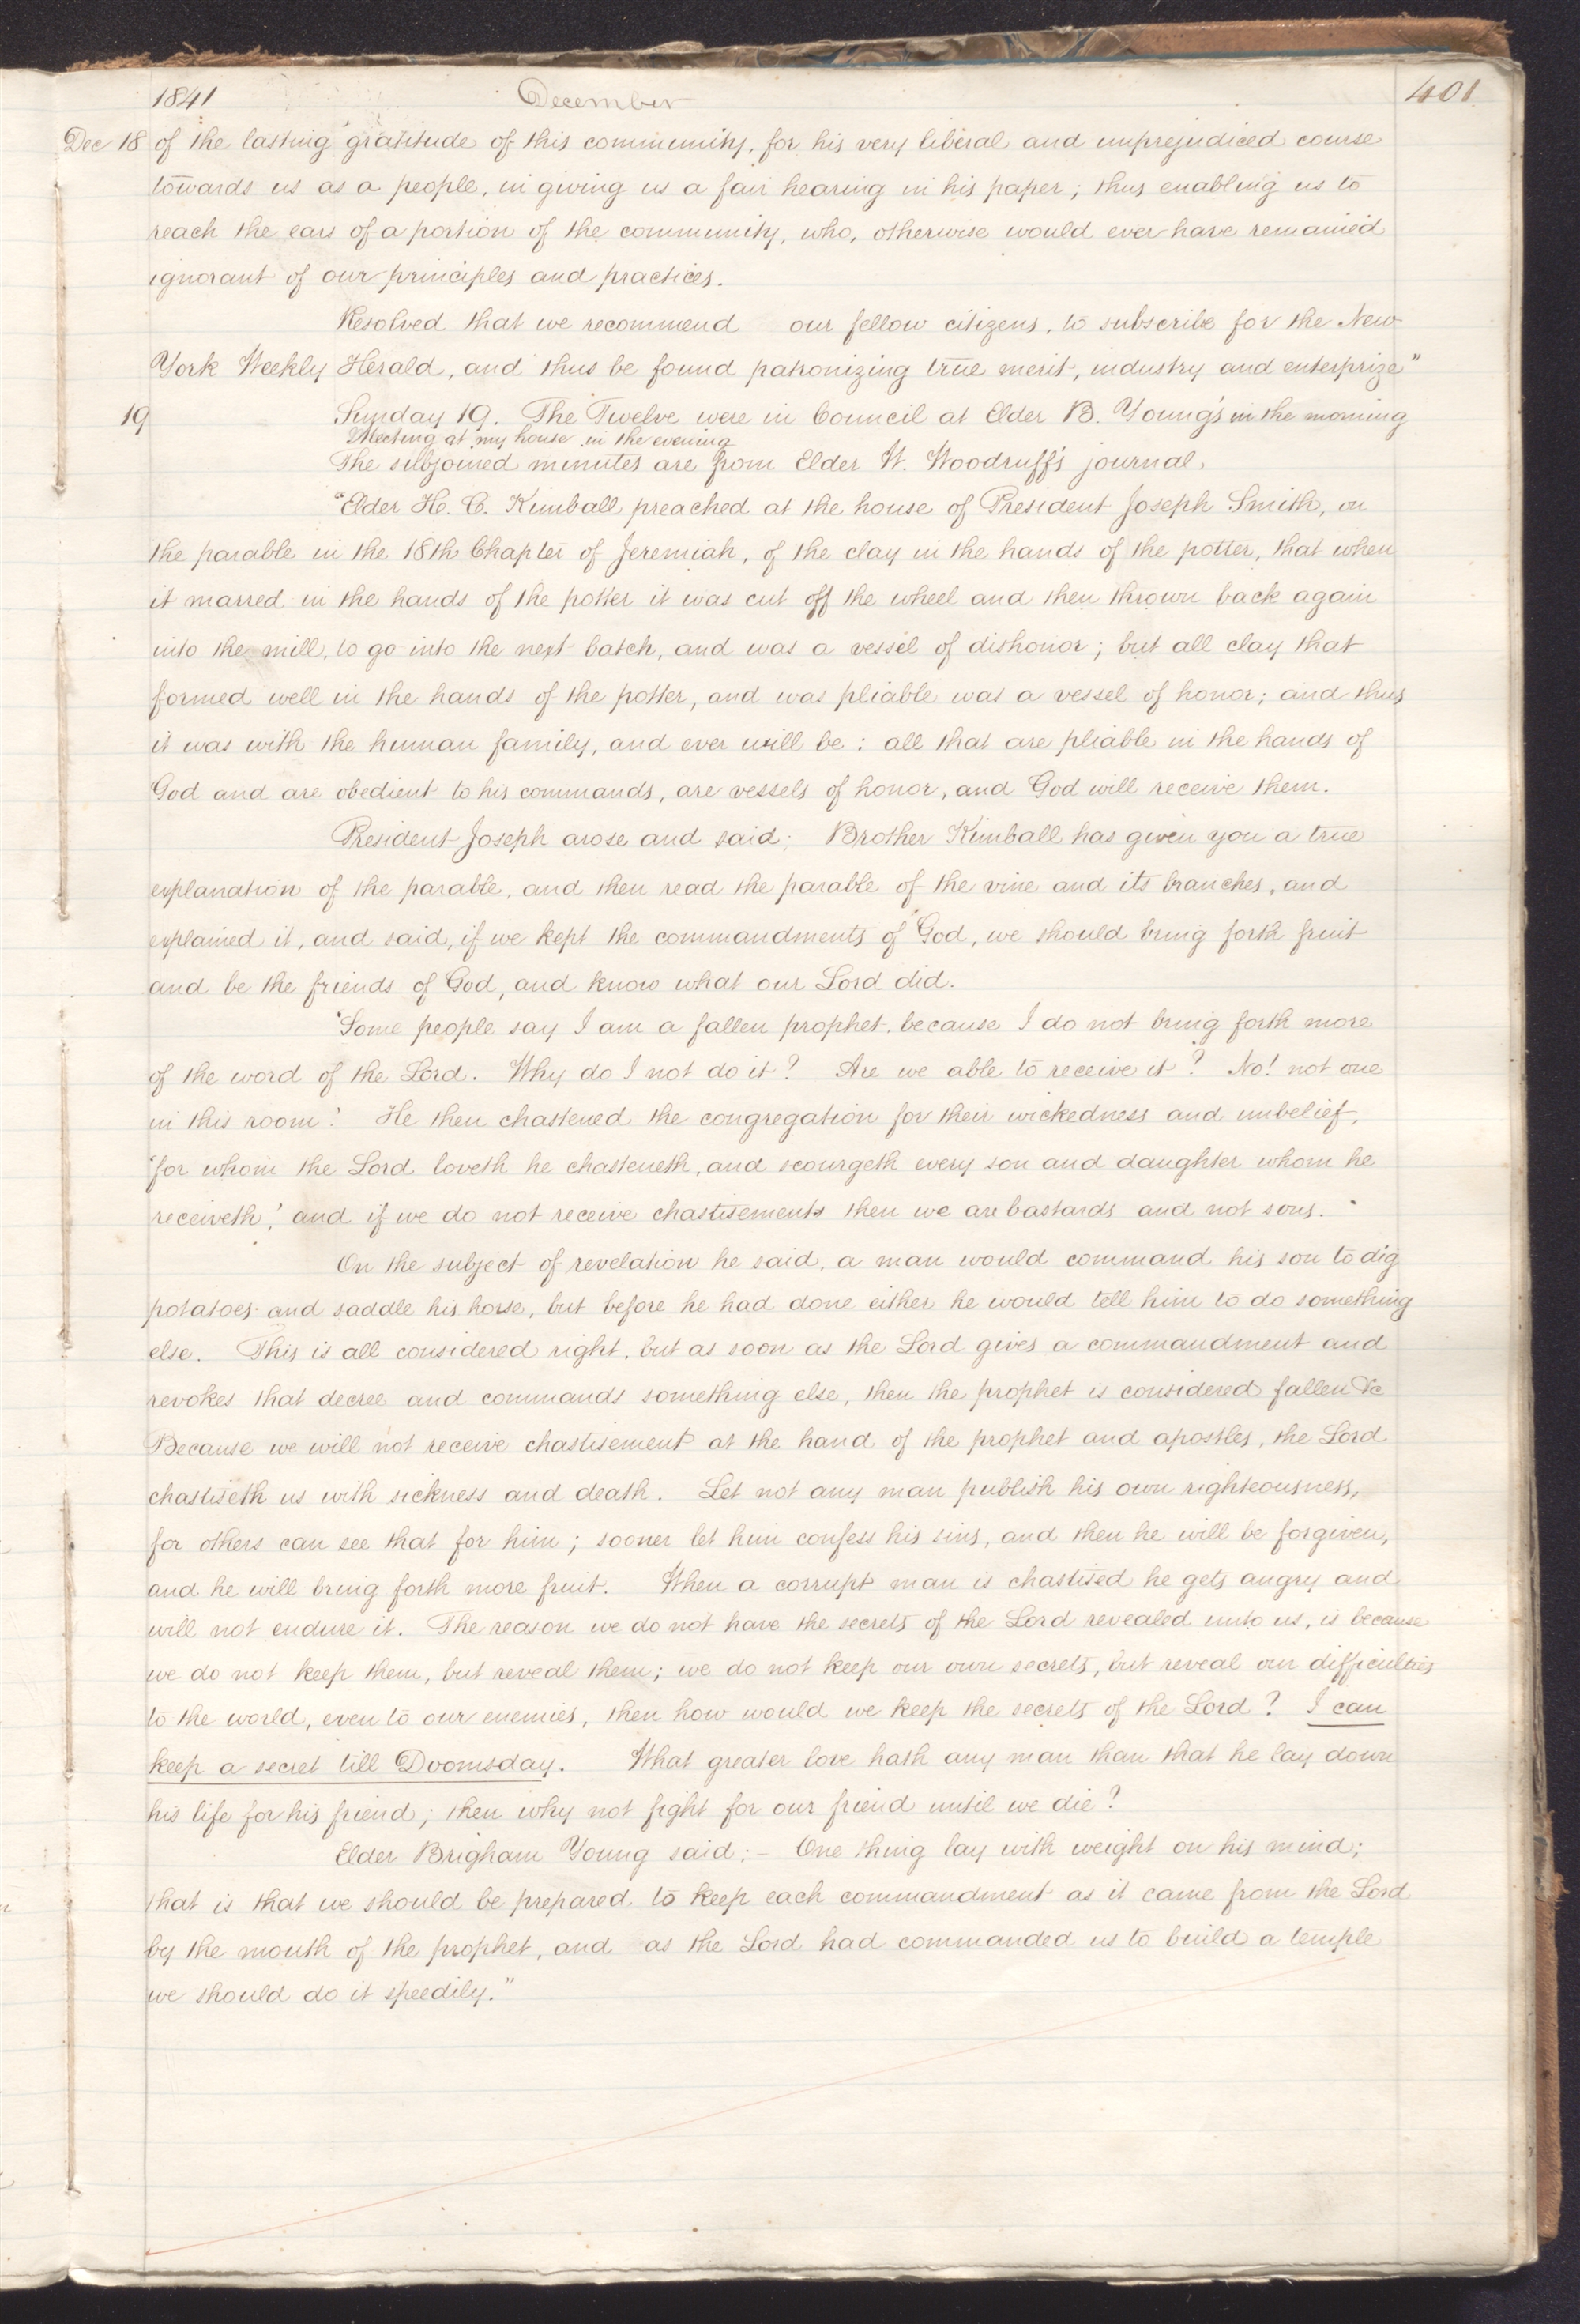 1841 December 401
Dec 18 of the lasting gratitude of this community, for his very liberal and unprejudiced course
towards us as a people, in giving us a fair hearing in his paper; thus enabling us to
reach the ears of a portion of the community, who, otherwise would ever have remained
ignorant of our principles and practices.
Resolved that we recommend our fellow citizens, to subscribe for the New
York Weekly Herald, and thus be found patronizing true merit, industry and enterprize"
19 Sunday 19. The Twelve were in Council at Elder B. Young's in the morning
Meeting at my house in the evening
The subjoined minutes are from Elder W. Woodruff's journal.
"Elder H. C. Kimball preached at the house of President Joseph Smith, on
the parable in the 18th Chapter of Jeremiah, of the clay in the hands of the potter, that when
it marred in the hands of the potter it was cut off the wheel and then thrown back again
into the mill, to go into the next batch, and was a vessel of dishonor; but all clay that
formed well in the hands of the potter, and was pliable was a vessel of honor; and thus
it was with the human family, and ever will be: all that are pliable in the hands of
God and are obedient to his commands, are vessels of honor, and God will receive them.
President Joseph arose and said; Brother Kimball has given you a true
explanation of the parable, and then read the parable of the vine and its branches, and
explained it, and said, if we kept the commandments of God, we should bring forth fruit
and be the friends of God, and know what our Lord did.
"Some people say I am a fallen prophet, because I do not bring forth more
of the word of the Lord. Why do I not do it? Are we able to receive it? No! not one
in this room! He then chastened the congregation for their wickedness and unbelief,
"for whom the Lord loveth he chasteneth, and scourgeth every son and daughter whom he
receiveth,' and if we do not receive chastisements then we are bastards and not sons."
On the subject of revelation he said, a man would command his son to dig
potatoes and saddle his horse, but before he had done either he would tell him to do something
else. This is all considered right, but as soon as the Lord gives a commandment and
revokes that decree and commands something else, then the prophet is considered fallen &c
Because we will not receive chastisement at the hand of the prophet and apostles, the Lord
chastiseth us with sickness and death. Let not any man publish his own righteousness,
for others can see that for him; sooner let him confess his sins, and then he will be forgiven,
and he will bring forth more fruit. When a corrupt man is chastised he gets angry and
will not endure it. The reason we do not have the secrets of the Lord revealed unto us, is because
we do not keep them, but reveal them; we do not keep our own secrets, but reveal our difficulties
to the world, even to our enemies, then how would we keep the secrets of the Lord? I can
keep a secret till Doomsday. What greater love hath any man than that he lay down
his life for his friend; then why not fight for our friend until we die?
Elder Brigham Young said:— One thing lay with weight on his mind;
that is that we should be prepared to keep each commandment as it came from the Lord
by the mouth of the prophet, and as the Lord had commanded us to build a temple
we should do it speedily."